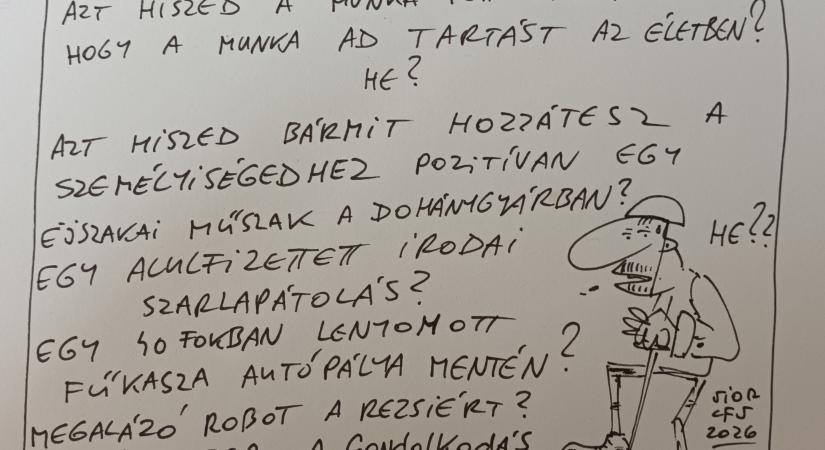 AZT HISZED A MUNKA
HOGY A MUNKA AD TARTÁST AZ ÉLETBEN?
HE?
AZT HISZED BÁRMIT HOZZÁTESZ A
SZEMÉLYISÉGEDHEZ POZITÍVAN EGY
ÉJSZAKAI MŰSZAK A DOHÁNYGYÁRBAN?
HE??
EGY ALULFIZETETT IRODAI
SZARLAPÁTOLÁS?
EGY 40 FOKBAN LENYOMOTT
FŰKASZA AUTÓPÁLYA MENTÉN?
MEGALÁZÓ ROBOT A REZSIÉRT?
A GONDOLKODÁS
2026